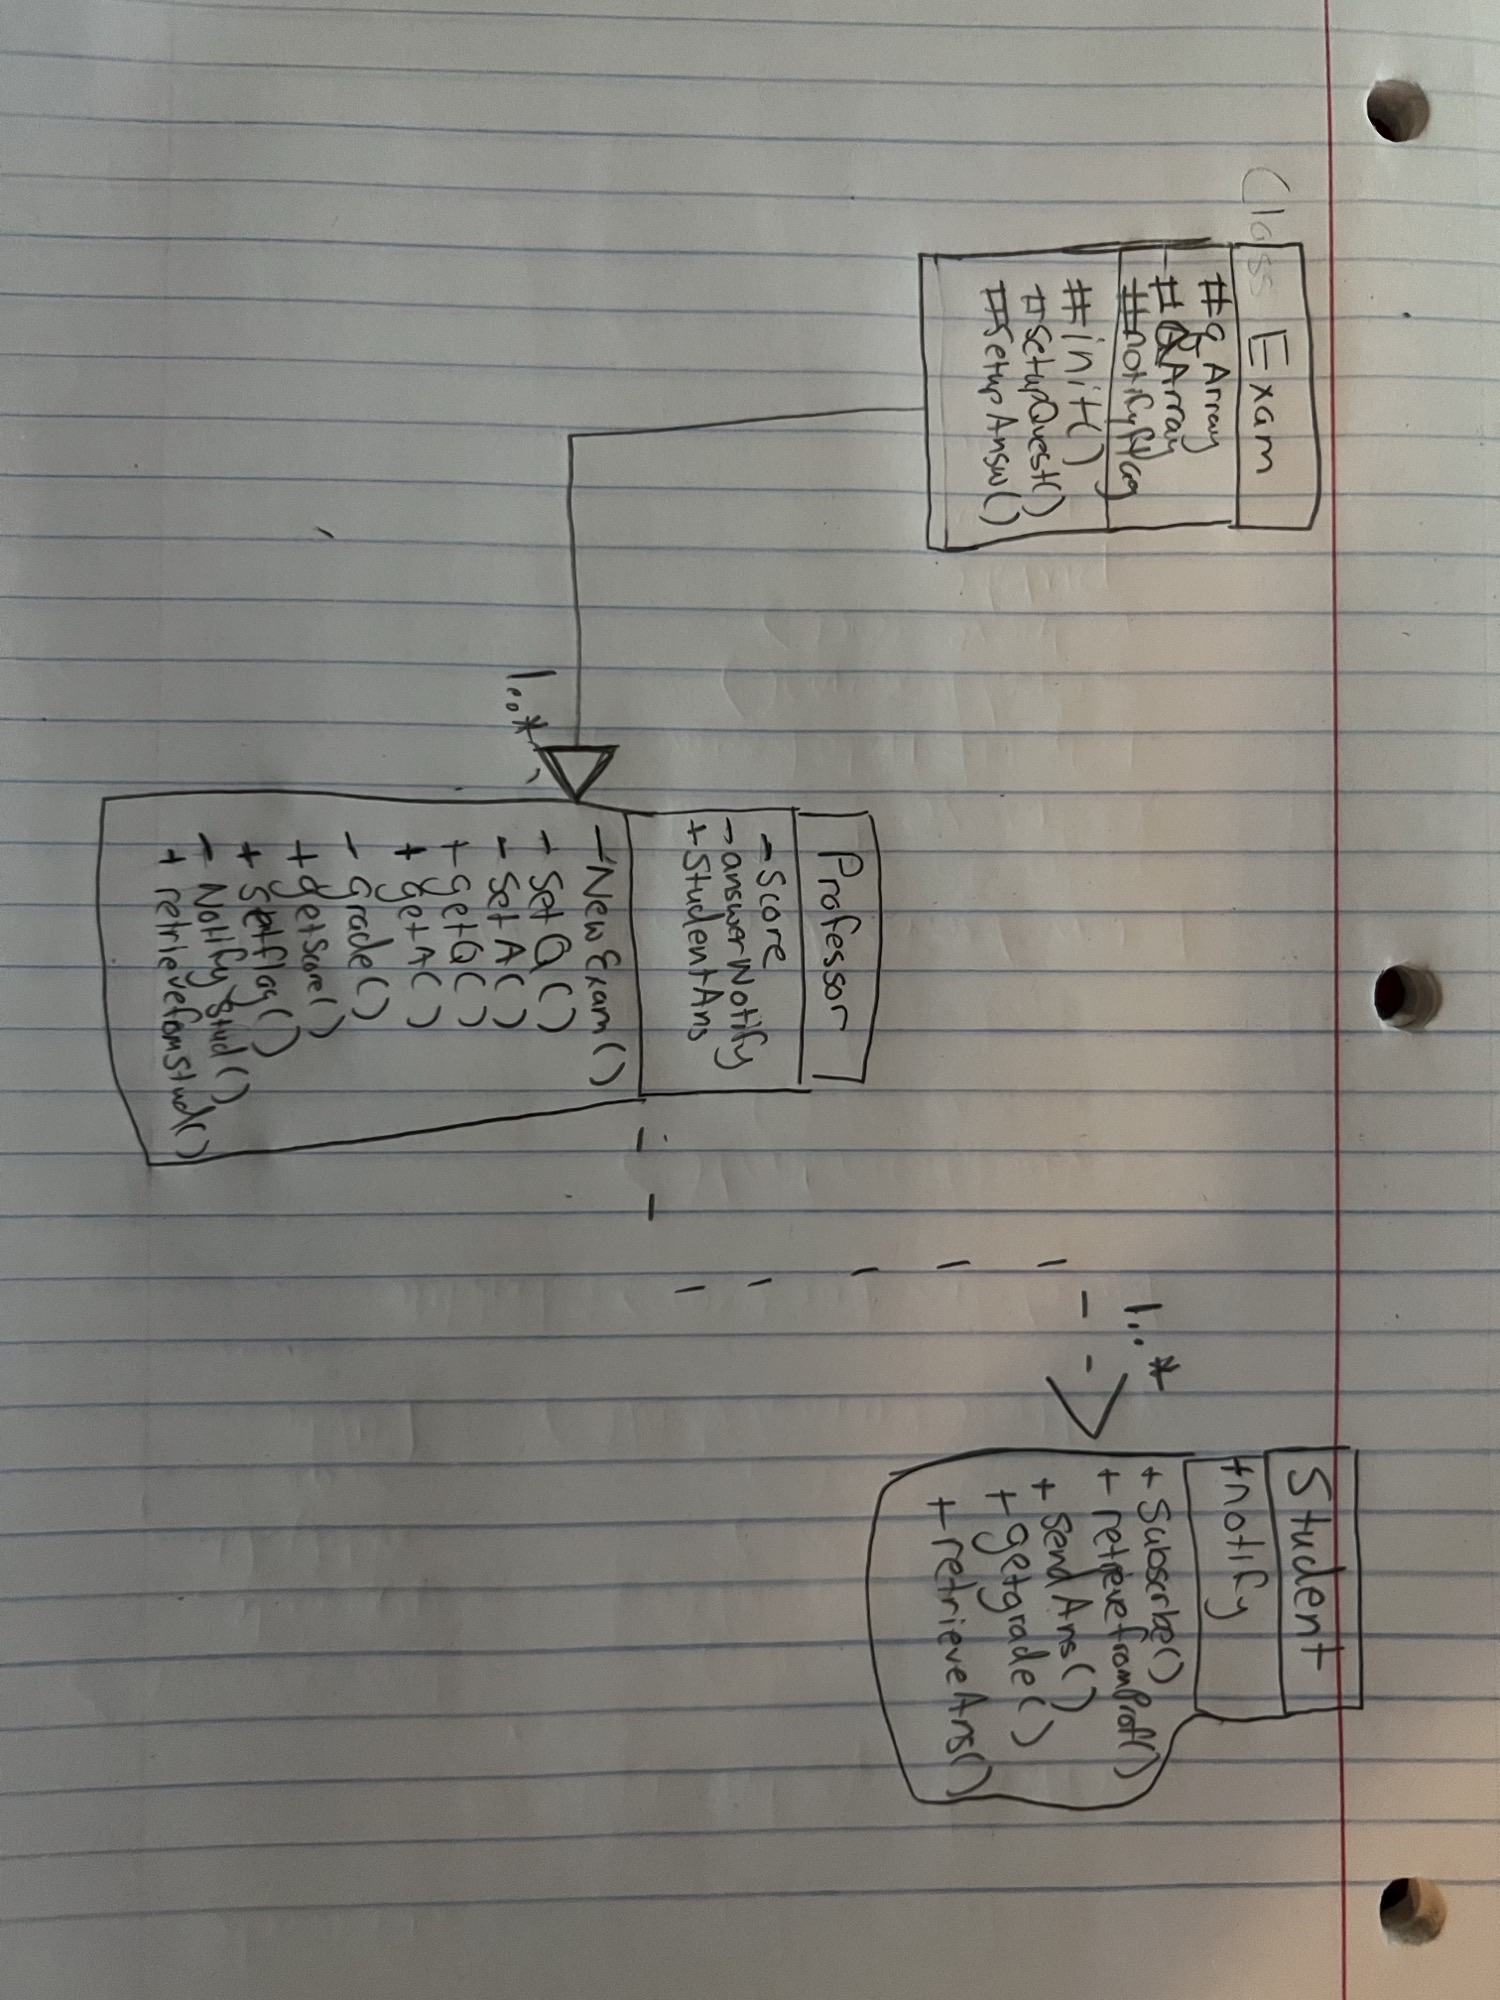 Class Exam
# q Array
# QArray
# notifyflag
# init()
# SetupQuest()
# SetupAnsw()
1..*
Professor
- Score
- answerNotify
+ StudentAns
- New Exam()
- Set Q()
- Set A()
+ getQ()
+ getA()
- Grade()
+ getScore()
+ Setflag()
- Notify Stud()
+ retrievefomStud()
1..*
Student
+notify
+ Subscribe()
+ retrievefromProf()
+ sendAns()
+ getgrade()
+ retrieveAns()